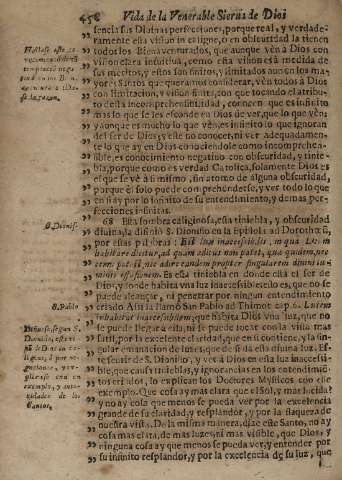 458 Vida de la Venerable Sierua de Dios
sencia sus Diuinas perfecciones, porque real, y verdade-
ramente esta vision in caligne, o en obscuridad la tienen
todos los Bienauenturados, que aunque vèn à Dios con
vision clara intuitiua, como esta vision es à medida de
sus meritos, y estos son finitos, y limitados aun en los ma-
yores Santos que queramos considerar, vèn todos à Dios
con limitacion, y vision finita, con que tocando el atribu-
to desta incomprehensibilidad, conocen que es infinito
mas lo que se les esconde en Dios de ver, que lo que vèn;
y aunque es mucho lo que vèn, es infinito lo que ignoran
del ser de Dios, y este no conocer, ni ver adequadamen-
te lo que ay en Dios conociendole como incomprehen-
sible, es conocimiento negatiuo con obscuridad, y tinie-
bla, porque como es verdad Catolica, solamente Dios es
el que se vè à si mismo, sin atomo de alguna obscuridad,
porque èl solo puede comprehenderse, y ver todo lo que
en si ay por lo infinito de su entendimiento, y demas per-
fecciones infinitas.
68 Esta sombra caliginosa, esta tiniebla, y obscuridad
diuina, la difiniò S. Dionisio en la Epistola ad Dorotheum,
por estas palabras: Est lux inaccessibilis, in qua Deus
habitare dicitur, ad quam
Es esta tiniebla en donde està el ser de
Dios, y donde habita vna luz inaccessible, es lo que no se
puede alcançar, ni penetrar por ningun entendimiento
criado. Assi la llamò San Pablo ad Thimot. cap. 6. Lucem
inhabitat inaccessibilem, que habita Dios vna luz, que no
se puede llegar à ella, ni se puede tocar con la vista mas
sutil, por la excelente claridad, que en si contiene, y la sin-
gular emanacion de luzes, que de si da esta diuina luz. Es-
te sentir de S. Dionisio, y ver à Dios en esta luz inaccessi-
ble, que causa tinieblas, y ignorancias en los entendimien-
tos criados, lo explican los Doctores Mysticos con este
exemplo. Que cosa ay mas clara que el Sol, y mas lucida?
y no ay cosa que menos se pueda ver por la excelencia
grande de su claridad, y resplandor, y por la flaqueza de
nuestra vista. De la misma manera, dize este Santo, no ay
cosa mas clara, de mas luzes, ni mas visible, que Dios, y
ninguna cosa ay que menos se pueda ver, y entender por
su infinito resplandor, y por la excelencia de su luz, que
S. Dionis.
S. Pablo
Santos.